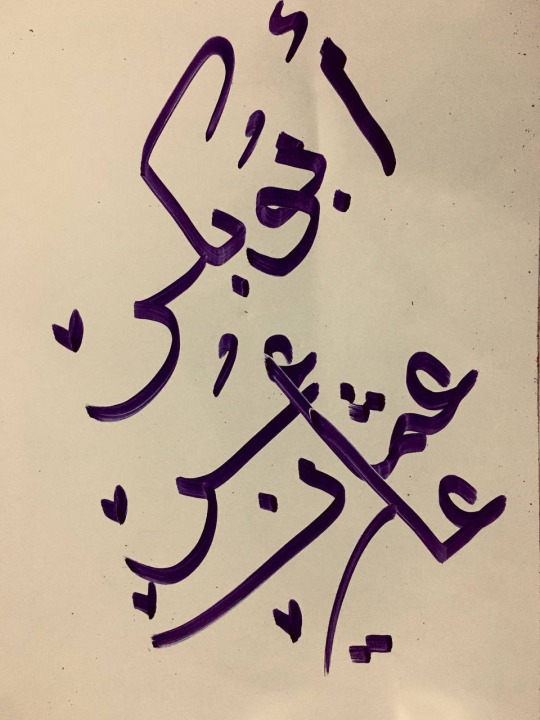 أبو بكر
عمر
عثمان
علي